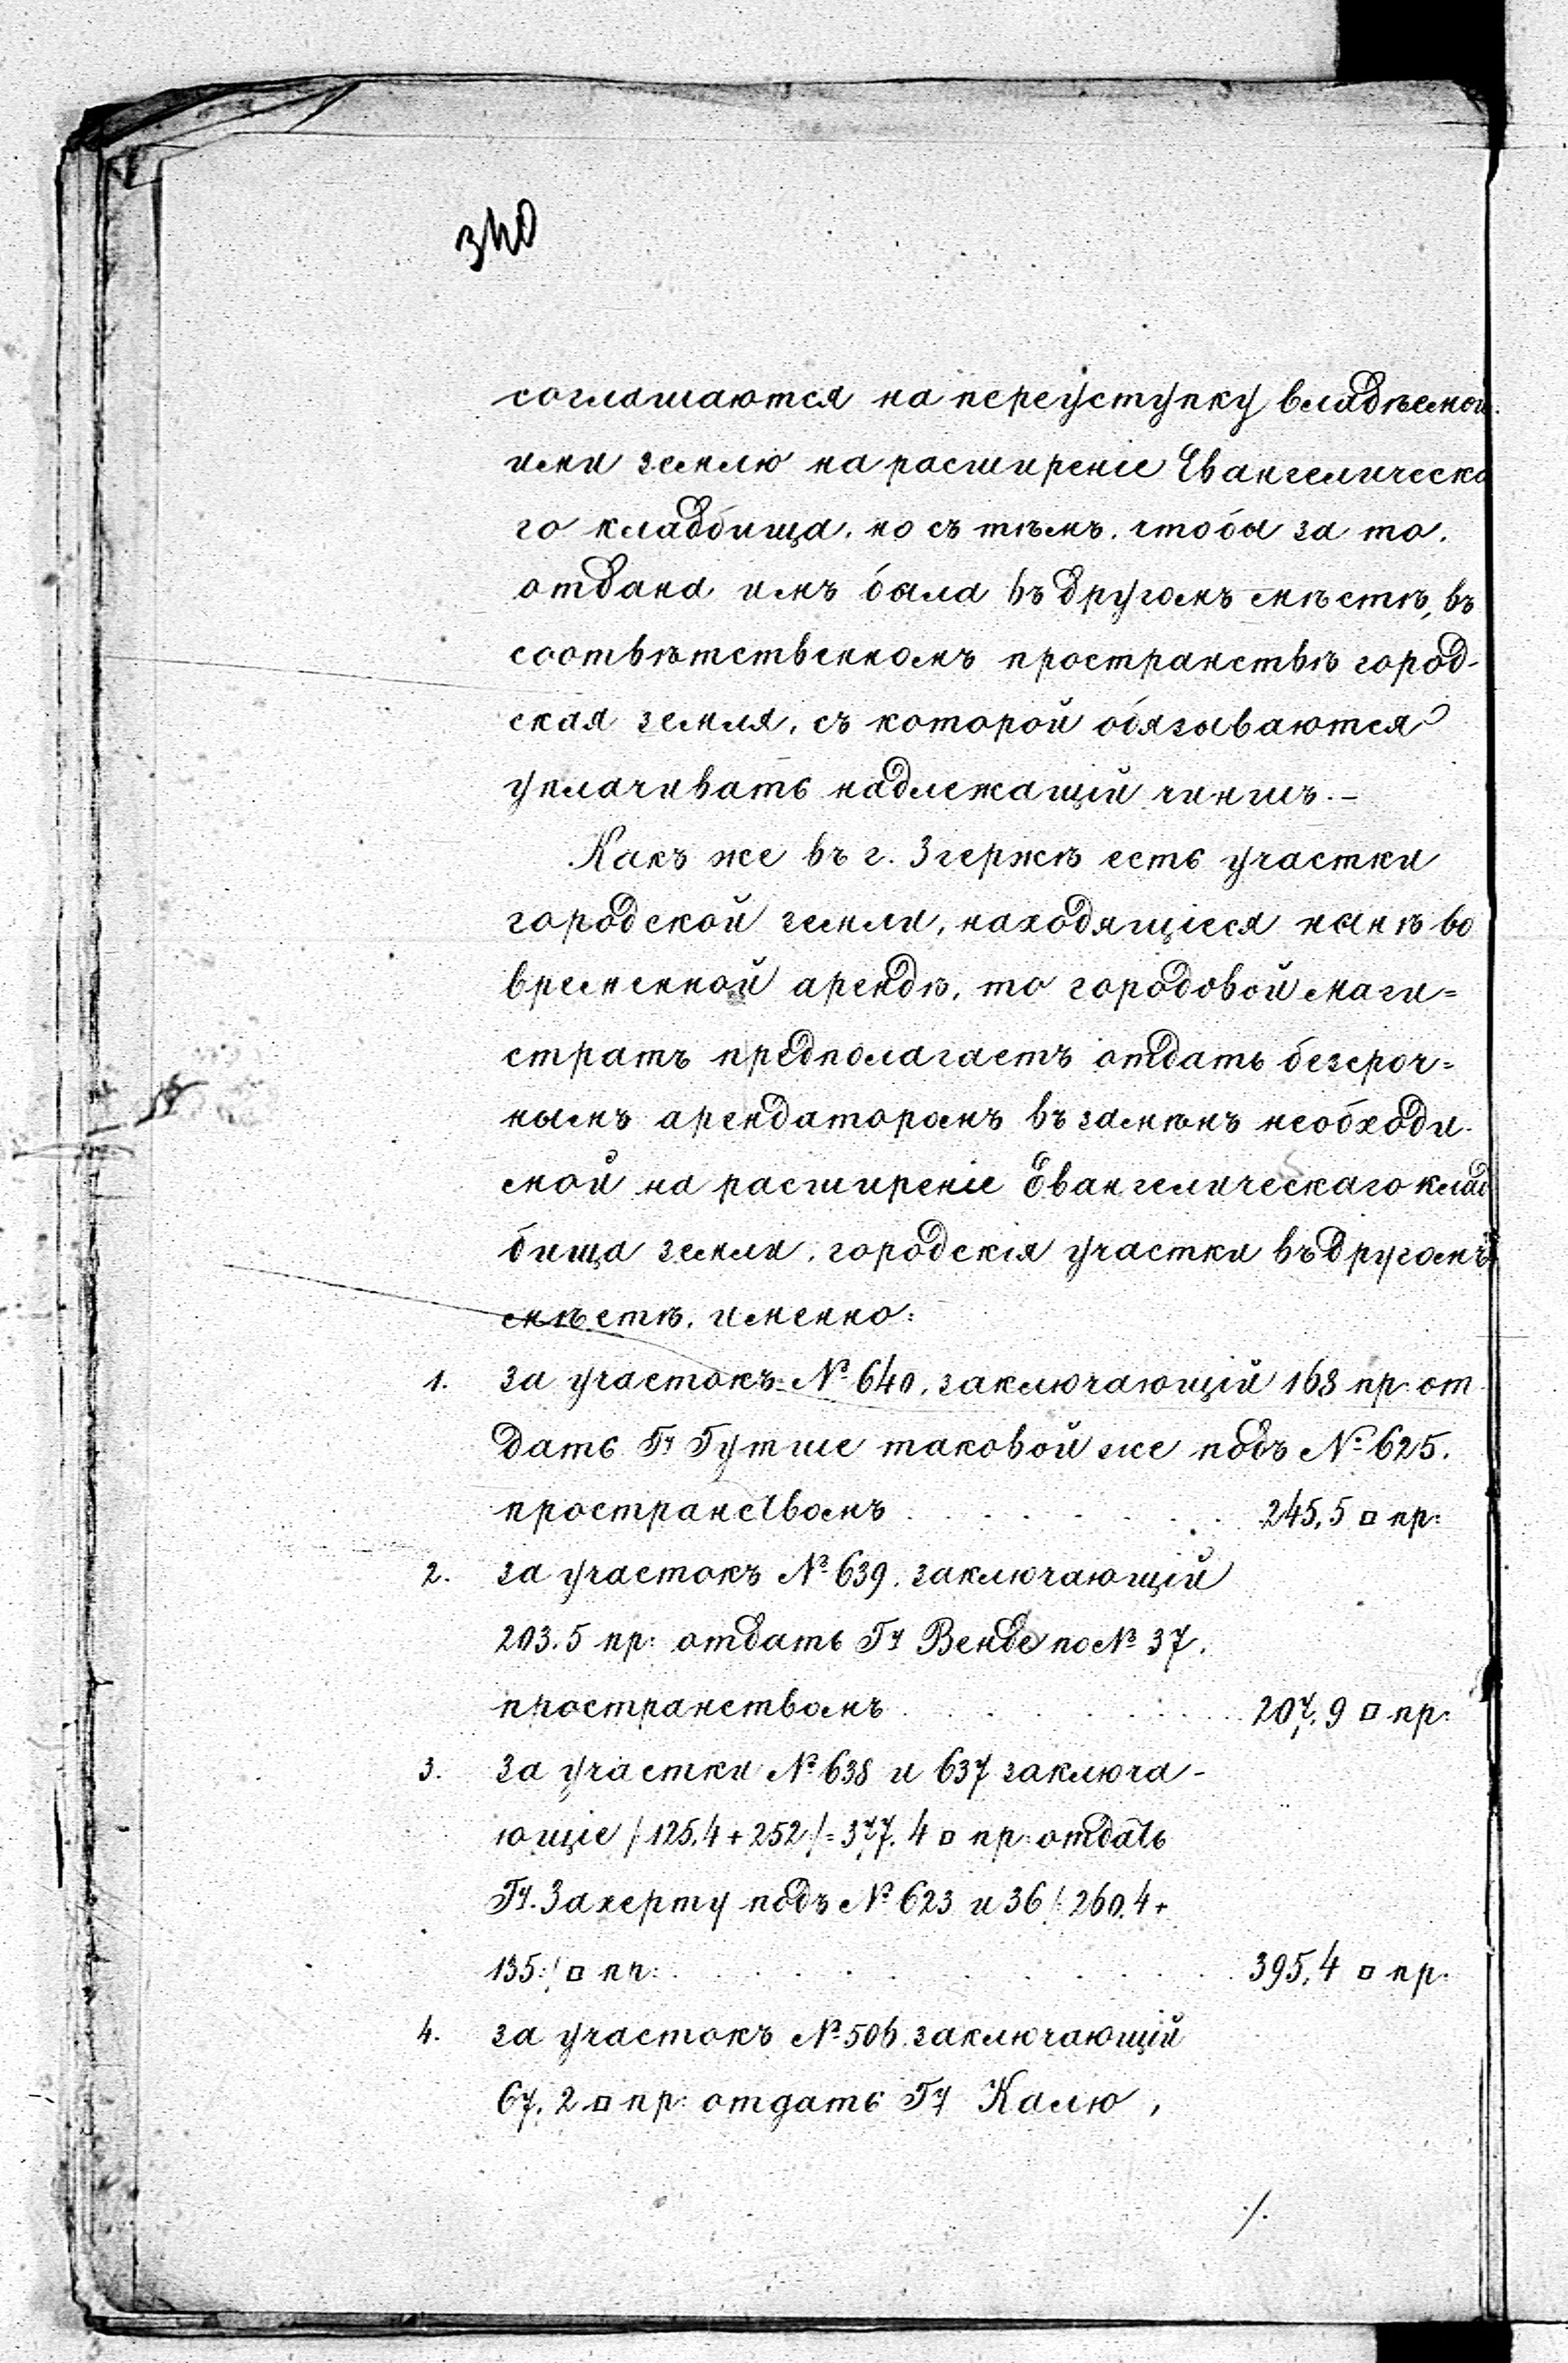 340
соглашаются на переуступку владѣемой
ими землю на расширеніе Евангелическа
го кладбища, но съ тѣмъ, чтобы за то,
отдана имъ была въ другомъ мѣстѣ, въ
соотвѣтственномъ пространствѣ город-
ская земля, съ которой обязываются
уплачивать надлежащій чиншъ.—
Какъ же въ г. Згержѣ есть участки
городской земли, находящіеся нынѣ во
временной арендѣ, то городовой маги=
стратъ предполагаетъ отдать безсроч=
нымъ арендаторамъ въ замѣнъ необходи-
мой на расширеніе Евангелическаго клад
бища земли, городскія участки въ другомъ
мѣстѣ, именно:
1. за участокъ: № 640, заключающій 163 пр: от
дать Гу Гутше таковой же подъ № 625,
пространствомъ . . . . . . . 245,5 □ пр:
2. за участокъ № 639, заключающій
203.5 пр: отдать Гу Венде по № 37,
пространствомъ . . . . . . . 207,9 □ пр:
3. за участки № 638 и 637 заключа-
ющіе /125,4 + 252/ = 377,4 □ пр: отдать
Гу. Захерту подъ № 623 и 36 /:260,4 +
135:/ □ пр: . . . . . . . . . 395,4 □ пр:
4. за участокъ № 506, заключающій
67,2 □ пр: отдать Гу Калю,
./.